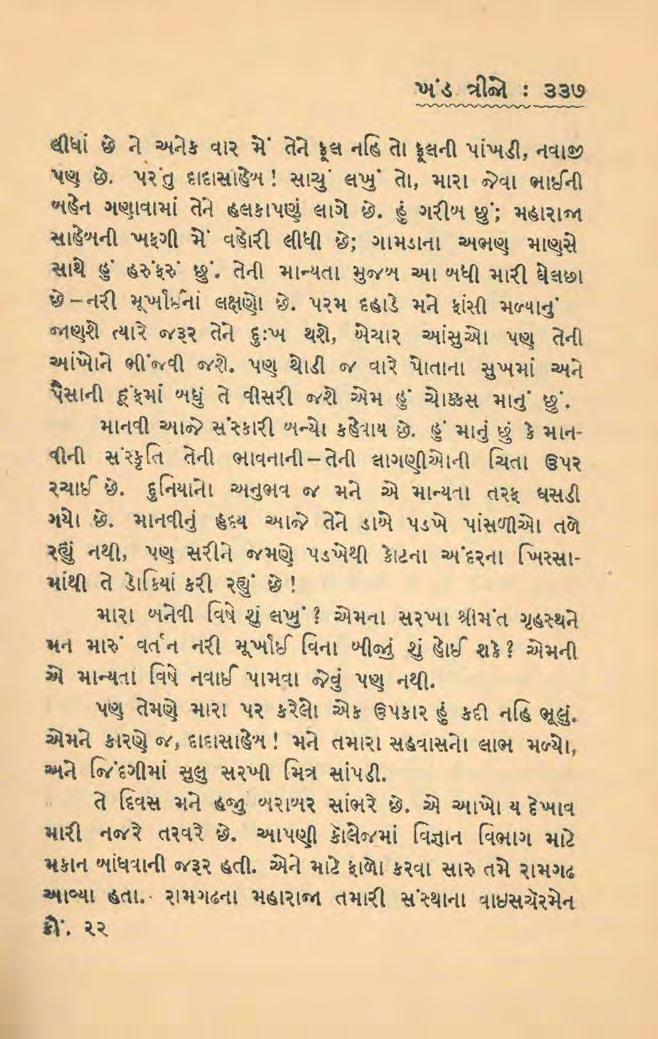 ખંડ ત્રીજો : ૩૩૭
લીધાં છે ને અનેક વાર મેં તેને ફૂલ નહિ તો ફૂલની પાંખડી, નવાજી
પણ છે. પરંતુ દાદાસાહેબ! સાચું લખું તો, મારા જેવા ભાઈની
બહેન ગણાવામાં તેને હલકાપણું લાગે છે. હું ગરીબ છું; મહારાજા
સાહેબની ખફગી મેં વહોરી લીધી છે; ગામડાના અભણ માણસો
સાથે હું હરુંફરું છું. તેની માન્યતા મુજબ આ બધી મારી ઘેલછા
છે–નરી મૂર્ખાઈનાં લક્ષણો છે. પરમ દહાડે મને ફાંસી મળ્યાનું
જાણશે ત્યારે જરૂર તેને દુઃખ થશે, બેચાર આંસુઓ પણ તેની
આંખોને ભીંજવી જશે. પણ થોડી જ વારે પોતાના સુખમાં અને
પૈસાની હૂંફમાં બધું તે વીસરી જશે એમ હું ચોક્કસ માનું છું.
માનવી આજે સંસ્કારી બન્યો કહેવાય છે. હું માનું છું કે માન-
વીની સંસ્કૃતિ તેની ભાવનાની–તેની લાગણીઓની ચિતા ઉપર
રચાઈ છે. દુનિયાનો અનુભવ જ મને એ માન્યતા તરફ ઘસડી
ગયો છે. માનવીનું હૃદય આજે તેને ડાબે પડખે પાંસળીઓ તળે
રહ્યું નથી, પણ સરીને જમણે પડખેથી કોટના અંદરના ખિસ્સા-
માંથી તે ડોકિયાં કરી રહ્યું છે!
મારા બનેવી વિષે શું લખું? એમના સરખા શ્રીમંત ગૃહસ્થને
મન મારું વર્તન નરી મૂર્ખાઈ વિના બીજું શું હોઈ શકે? એમની
એ માન્યતા વિષે નવાઈ પામવા જેવું પણ નથી.
પણ તેમણે મારા પર કરેલો એક ઉપકાર હું કદી નહિ ભૂલું.
એમને કારણે જ, દાદાસાહેબ! મને તમારા સહવાસનો લાભ મળ્યો,
અને જિંદગીમાં સુલુ સરખી મિત્ર સાંપડી.
તે દિવસ મને હજુ બરાબર સાંભરે છે. એ આખો ય દેખાવ
મારી નજરે તરવરે છે. આપણી કૉલેજમાં વિજ્ઞાન વિભાગ માટે
મકાન બાંધવાની જરૂર હતી. એને માટે ફાળો કરવા સારુ તમે રામગઢ
આવ્યા હતા. રામગઢના મહારાજા તમારી સંસ્થાના વાઇસચૅરમેન
ક્રૌં. ૨૨